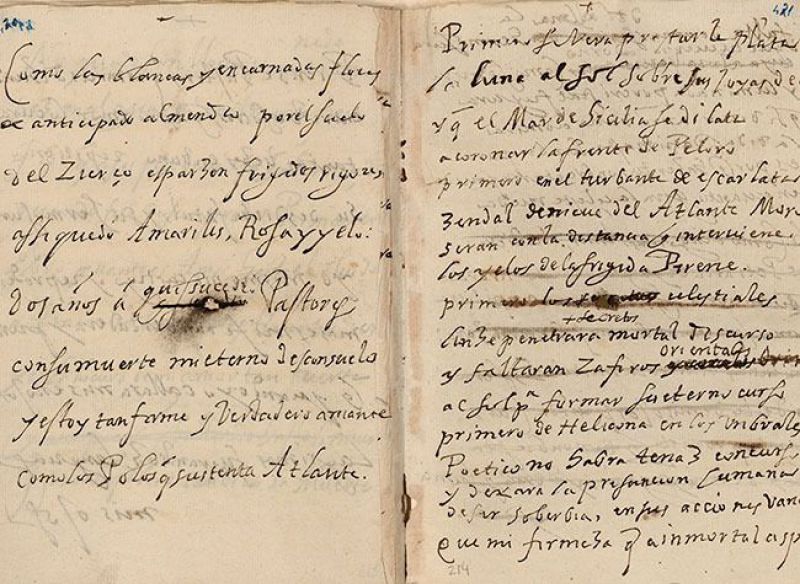 Como las blancas y encarnadas flores
de anticipado almendro por el suelo
del Zierço esparzen frigidos rigores
assi quedo Amarilis, Rosa y yelo:
dos años á q̃ sucede. Pastores
con su muerte mi eterno desconsuelo
y estoy tan firme y verdadero amante
como los Polos q̃ sustenta Atlante.
421
Primero se vera preturle plata
la luna al sol sobre sus joyas de
y q̃ el Mar de Sicilia se dilata
a coronar la frente de Peloro
primero en el turbante de escarlata
zendal de nieue del Atlante Moro
seran con la distancia q̃ interviene.
los yelos de la frigida Pirene.
primero los celestiales
+ secretos
linze penetrara mortal discurso
Orientales
y faltaran Zafiros
al sol pª formar su eterno curso
primero de Helicona en los vmbrales
Poetico no sabra tener concurso
y dexara la presuncion humana
de ser soberbia, en sus acciones vana
Que mi firmeza q̃ a inmortal asp
214